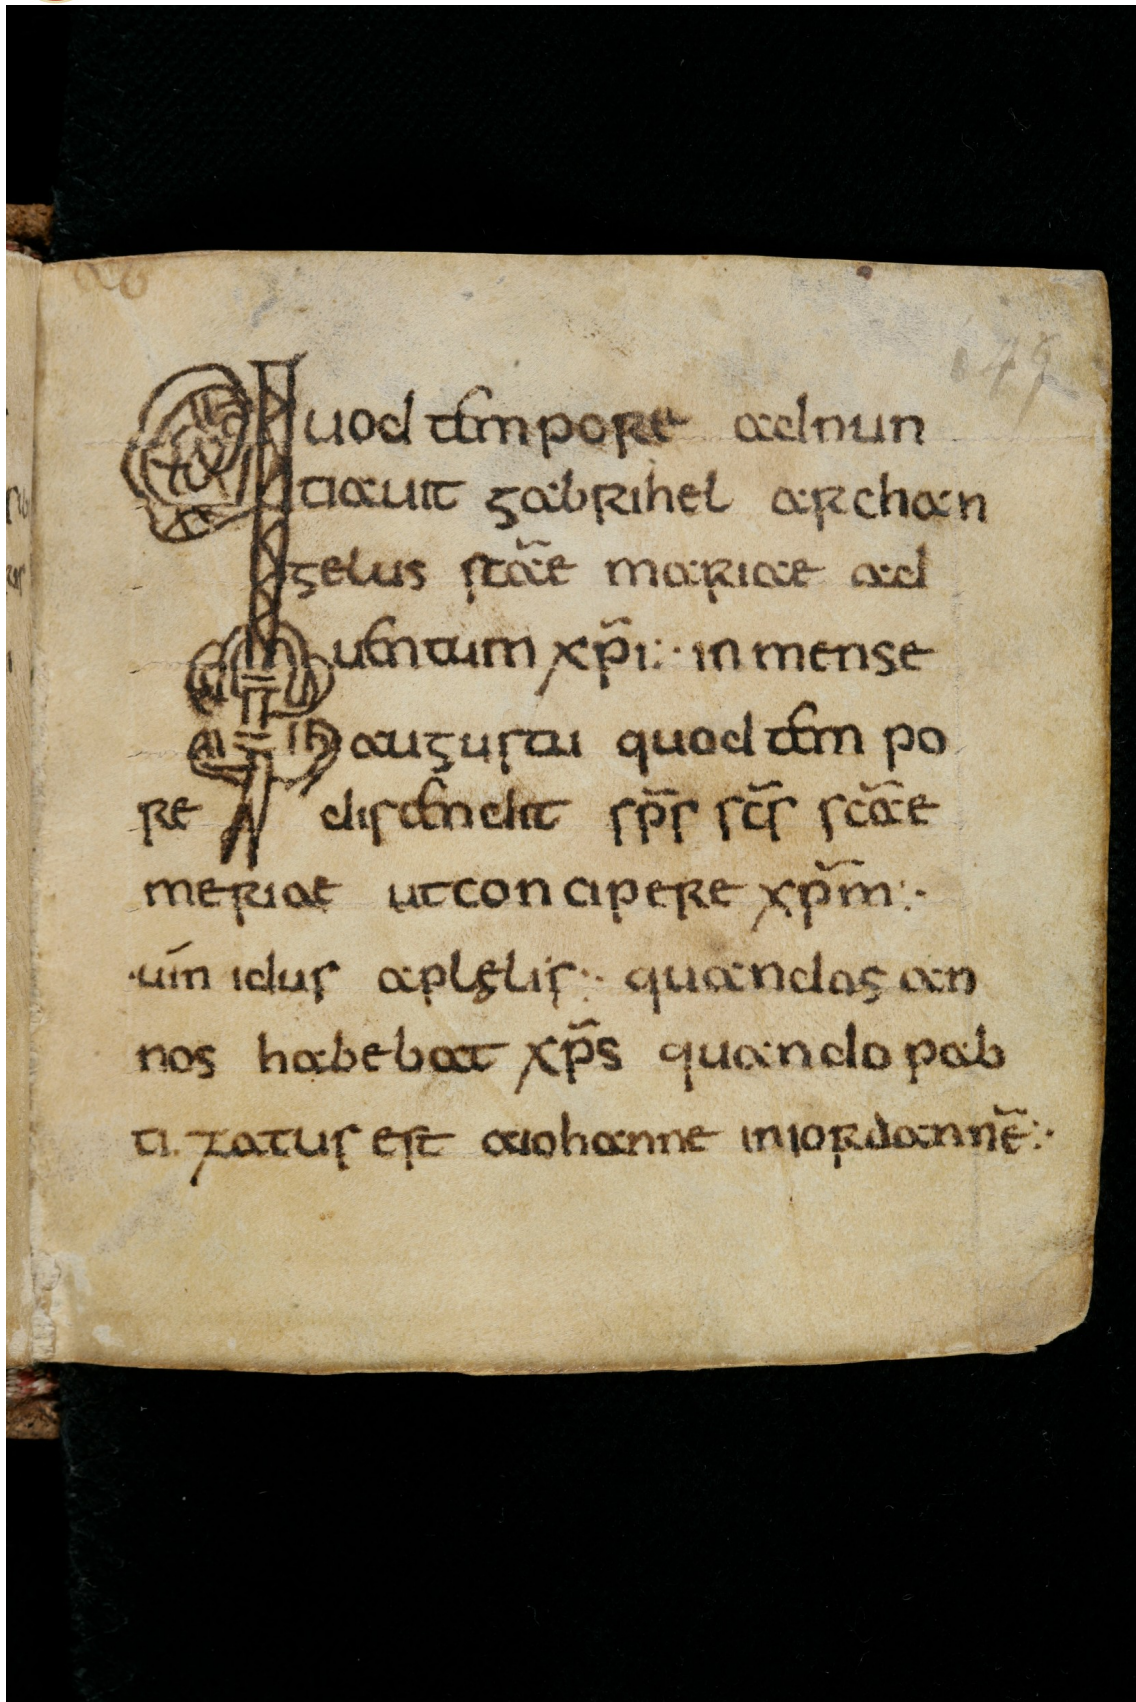 Quod tempore adnun
tiauit gabrihel archan
gelus stãe mariae ad
uentum xp̃i:· in mense
augustu quod tempo
re discendit sp̃s sc̃s sc̃ae
meriae ut concipere xp̃m:·
·uiii idus aplęlis:· quandos an
nos habebat xp̃s quando pab
ti.zatus est aiohanne in iordannẽ:·